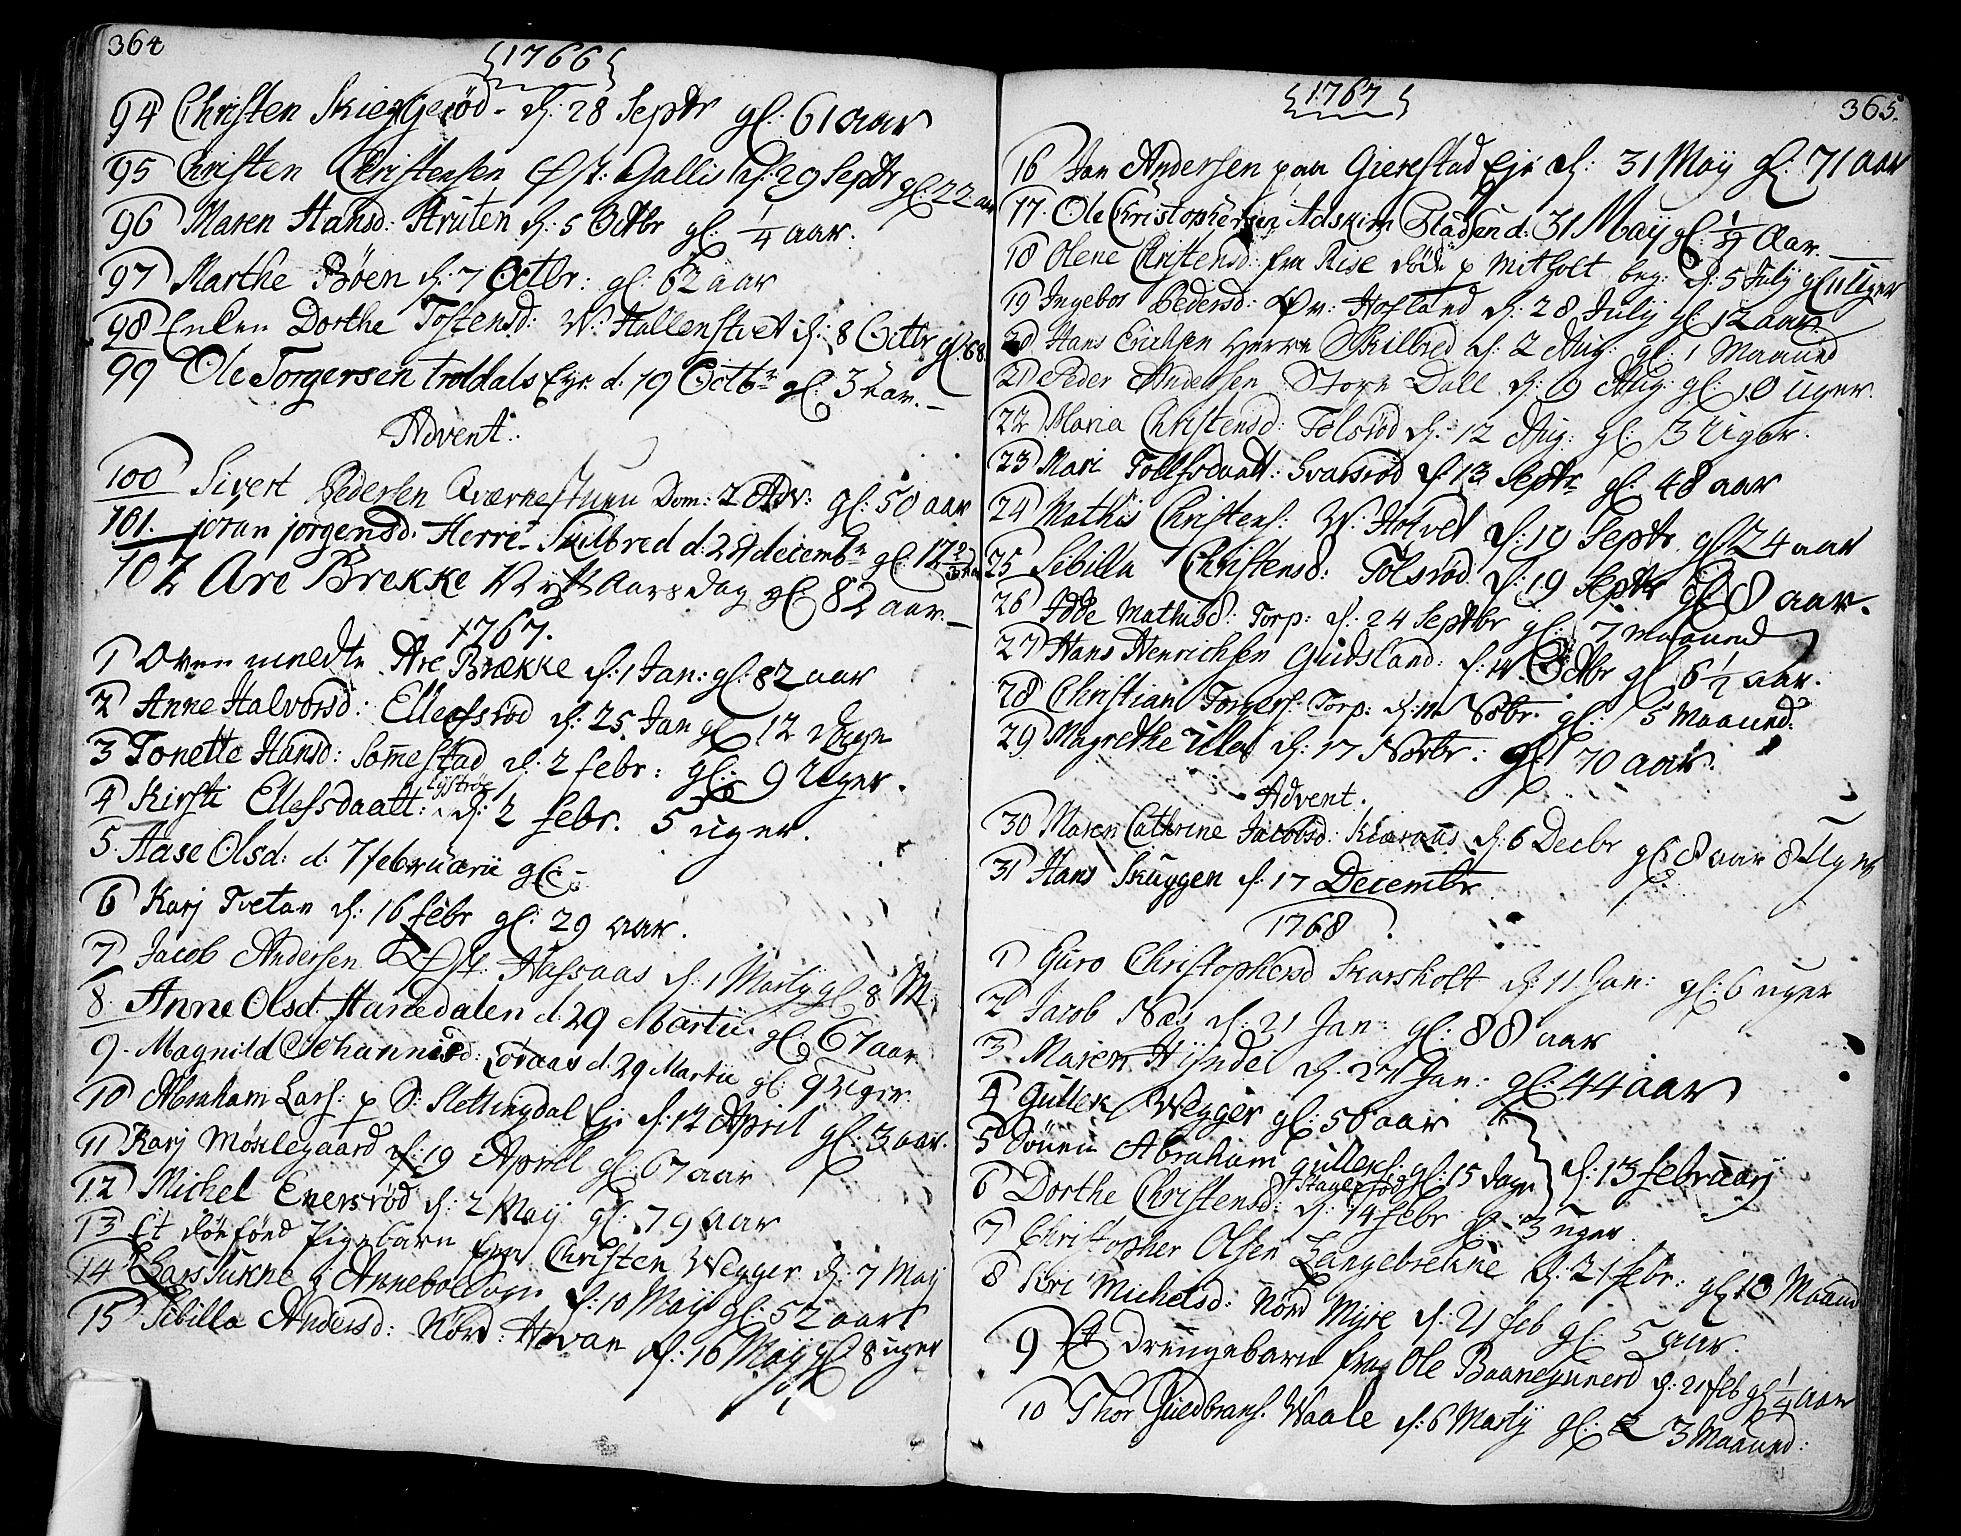 364
1766
94 Christen Skieggerød - d: 28 Septr gl: 61 aar
95 Christen Christensen Øst: Gallis d: 29 Septr gl: 22 aar
96 Maren Hansd: Struten d: 5 Octbr gl: 1/4 aar.
97 Marthe Bøen d: 7 Octbr: gl: 62 aar
98 Enken Dorthe Tostensd: W: Hallenstvet d: 8 Octbr gl: 68.
99 Ole Torgersen troldals Eye d. 19 Octbr gl: 3 aar.-
Advent.
100 Sivert Pedersen Qværnestuen Dom: 2 Adv: gl: 50 aar
101. joran jorgensd. Herre Skilbred d: 29 decembr gl: 12
102 Are Brekke Nytt Aarsdag gl: 82 aar.-
1767.
1 Oven meldte Are Brekke d: 1 Jan: gl: 82 aar
2 Anne Halvorsd: Ellefsrød d: 25 Jan gl 12 dage
3 Tonette Hansd: Somestad d. 2 febr: gl: 9 Uger.
4 Kirsti Ellefsdaatt: d: 2 febr. 5 uger.
5. Aase Olsd: d. 7 februarii gl: -
6 Karj Tvetan d. 16 febr gl: 29 aar.
7 Jacob Andersen Øst: Hafsaas d. 1 Martij gl 8 M:
8. Anne Olsd. Hanedalen d. 29 Martii gl: 67 aar
9. Magnild Johannisd: Loraas d. 29 Martii gl: 9 Uger.
10 Abraham Lars: p S: Slettingdal Eje d. 12 April gl: 3 aar.
11 Karj Møklegaard d: 19 Aprill gl: 67 aar
12 Michel Enersrød d: 2 Maij gl: 79 aar
13 Et dødfød Pigebarn fra Christen Wegger d. 7 Maij
14 Lars Sukne d: 10 Maij gl: 52 aar
15 Sibilla Andersd: Nord: Hovan d: 16 Maij gl 8 uger
1767
365.
16 Jan Andersen paa Gierstad Eje d: 31 Maij gl: 71 aar
17. Ole Christophersen Adskim Pladsen d. 31 Maij gl: 1/4 Aar.
18 Olene Christensd: fra Rise døde p Mitholt beg: d: 5 Julij gl 11 Uger
19 Ingebor Pedersd: Øv: Hofland d. 28 Julij gl: 12 aar
20 Hans Erichsen Herre Skilbred d. 2 Aug: gl: 1 Maaned
21 Peder Andersen Store Dall d: 9 Aug: gl: 10 uger.
22 Maria Christensd: Tolsrød d. 12 Aug: gl: 3 Uger.
23 Mari Tollefsdaatt: Svarsrød d. 13 Septr gl: 48 aar
24 Mathis Christens: W: Holvet d: 19 Septr gl 24 aar
25 Sibilla Christensd: Tolsrød d: 19 Septr gl 8 aar.
26 Idde Mathisd: Torp: d: 24 Septbr gl: 7 Maaned
27 Hans Henrichsen Gudsland: Octbr gl 6 1/2 aar.
28 Christian Torgers: Torp: d: 11 Nobr. gl: 5 Maaned:
29 Magrethe Ulla d: 17 Novbr: gl: 70 aar.
Advent.
30 Maren Cathrine Jacobsd: Kiæraas d: 6 Decbr gl: 8 aar 8 Uger
31 Hans Skuggen d. 17 Decembr
1768
1 Guro Christophersd Skarsholt d: 11 Jan: gl: 6 uger
2 Jacob Næs d. 21 Jan: gl: 88 aar
3 Maren Hÿndel d. 27 Jan: gl: 44 aar
4 Gullek Wegger gl: 56 aar
5 Sønen Abraham Gulleks: gl: 15 dage d: 13 februarij
6 Dorthe Christensd: Stagersrød d: 14 febr gl: 3 uger.
7 Christopher Olsen Langebrekke d: 21 febr: gl 13 Maan
8 Siri Michelsd: Nord Myre d. 21 feb gl: 5 aar.
9 Et drengebarn fra Ole d: 21 feb gl 1/4 aar
10 Thor Guldbrans. Waale d: 6 Martij gl: 3 Maaned: